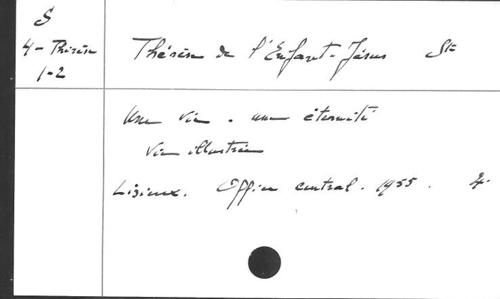 S
4 - Thérèse
1-2
Thérèse de l'Enfant-Jésus Ste
Une vie. une éternité
Vie illustrée
Lisieux. Office central. 1955. 4.